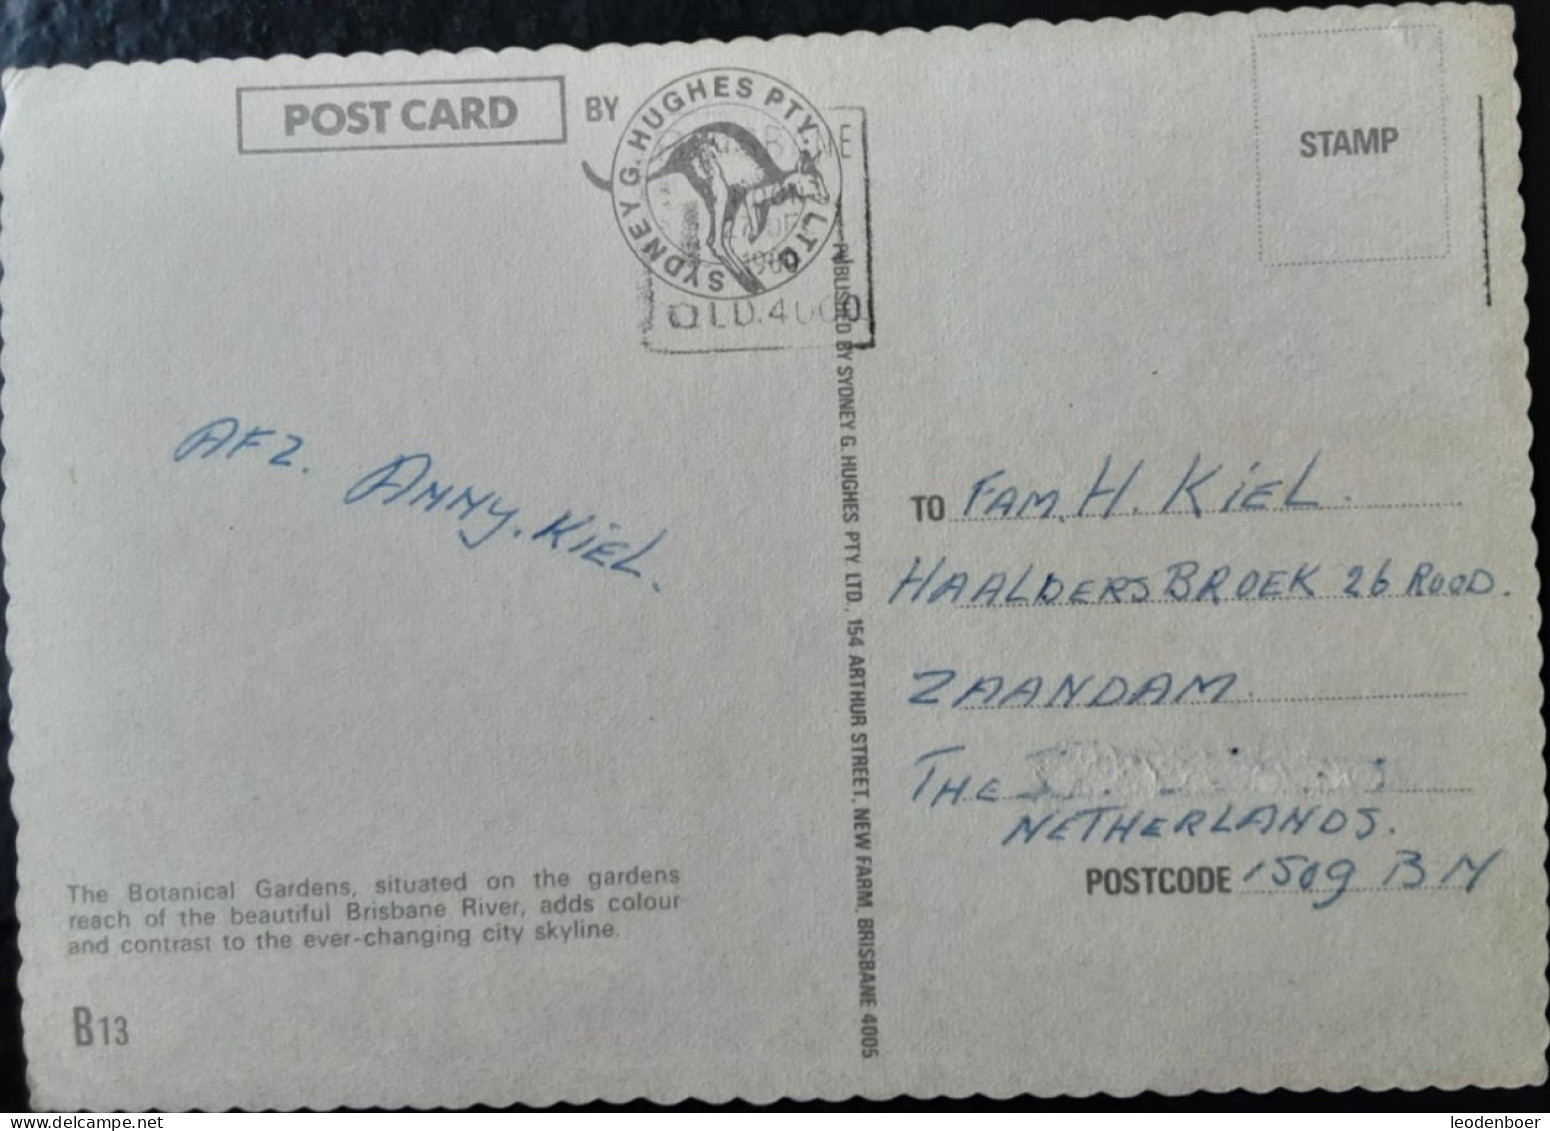 POST CARD BY
SYDNEY G. HUGHES PTY. LTD.
1980
QLD. 4000
STAMP
AFZ. ANNY. KIEL.
PUBLISHED BY SYDNEY G. HUGHES PTY. LTD., 154 ARTHUR STREET, NEW FARM, BRISBANE 4005
TO FAM. H. KIEL.
HAALDERSBROEK 26 ROOD.
ZAANDAM.
THE
NETHERLANDS.
POSTCODE 1509 BM
The Botanical Gardens, situated on the gardens
reach of the beautiful Brisbane River, adds colour
and contrast to the ever-changing city skyline.
B13
leodenboer